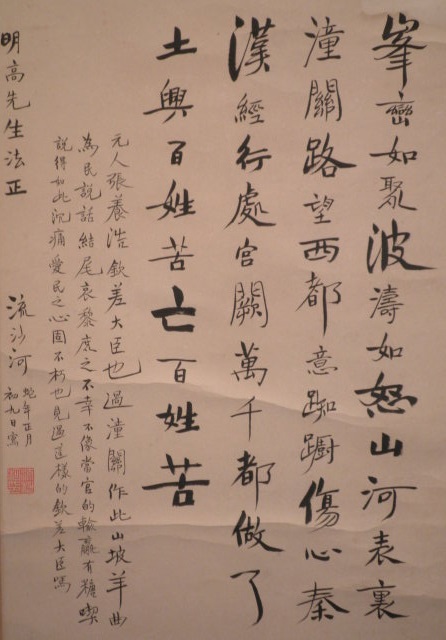 峯巒如聚波濤如怒山河表裏
潼關路望西都意踟躕傷心秦
漢經行處宮闕萬千都做了
土興百姓苦亡百姓苦
元人張養浩欽差大臣也過潼關作此山坡羊曲
為民說話結尾哀黎庶之不幸不像當官的輸贏有糖喫
說得如此沉痛愛民之心固不朽也見過這樣的欽差大臣嗎
明高先生法正
流沙河
蛇年正月
初九日寫